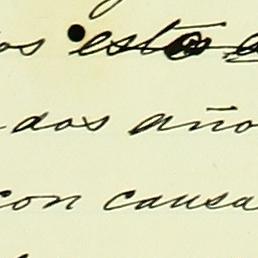 os esto
dos año
con causa